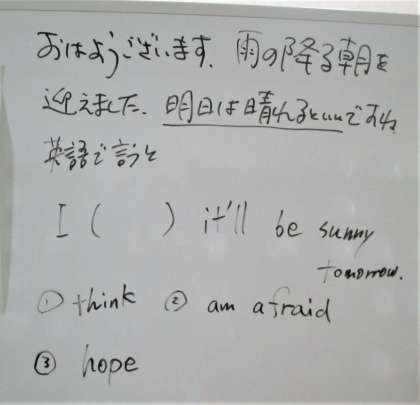 おはようございます。雨の降る朝を
迎えました。明日は晴れるといいですね
英語で言うと
I (    ) it'll be sunny
tomorrow.
① think ② am afraid
③ hope